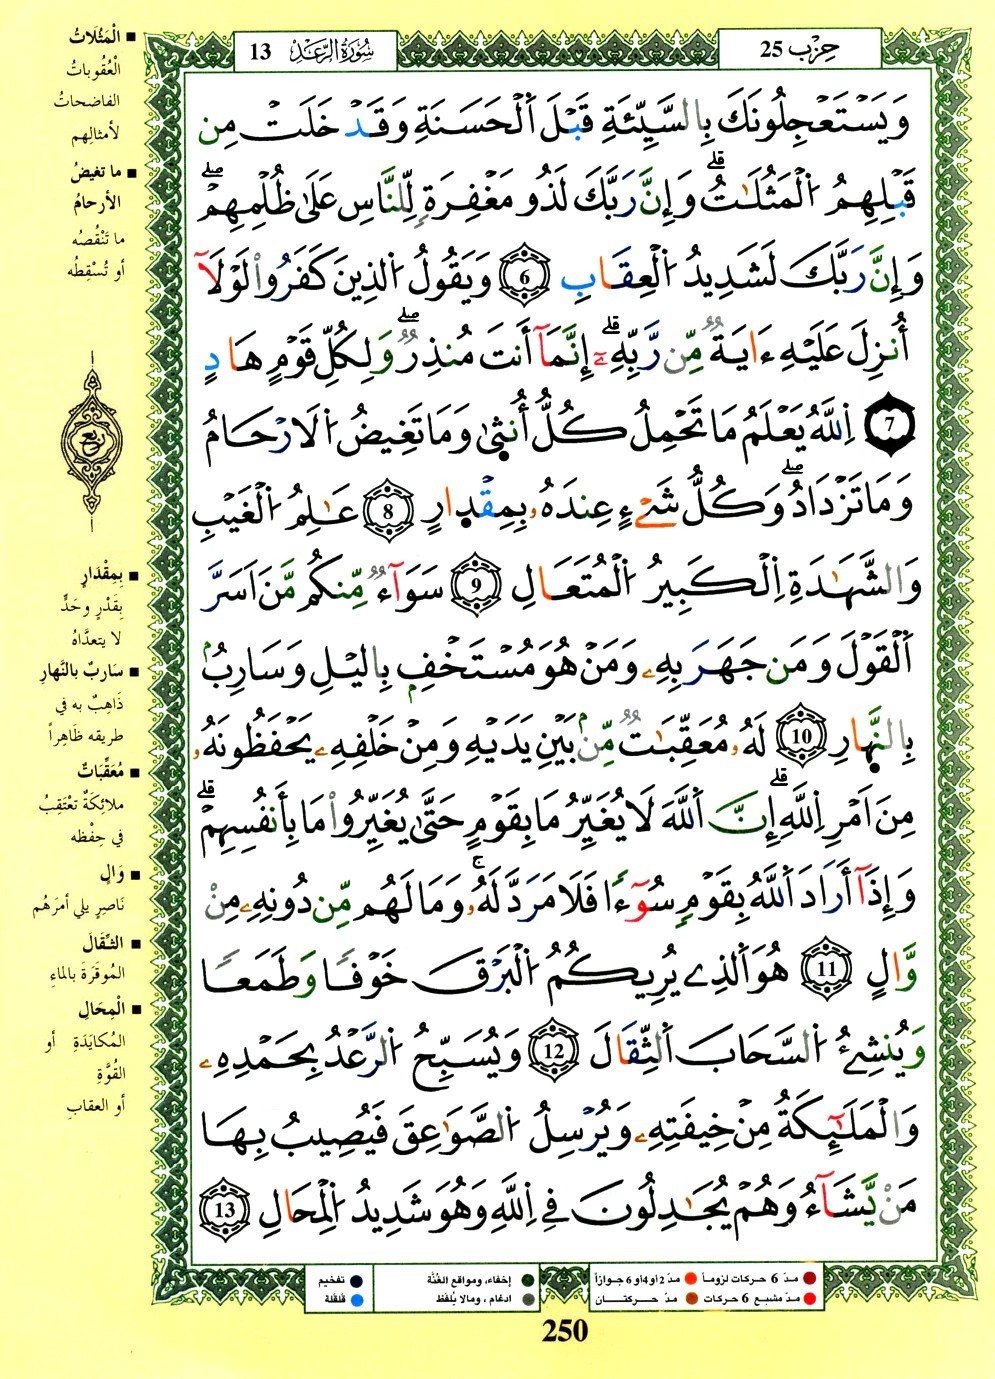 حِزْب 25
سُورَةُ الرَّعْدِ 13
وَيَسْتَعْجِلُونَكَ بِالسَّيِّئَةِ قَبْلَ اَلْحَسَنَةِ وَقَدْ خَلَتْ مِن
قَبْلِهِمُ اُلْمَثُلَٰتُۖ وَإِنَّ رَبَّكَ لَذُو مَغْفِرَةٖ لِّلنَّاسِ عَلَىٰ ظُلْمِهِمْۖ
وَإِنَّ رَبَّكَ لَشَدِيدُ اُلْعِقَابِ 6 وَيَقُولُ اُلذِينَ كَفَرُواْ لَوْلَآ
أُنزِلَ عَلَيْهِ ءَايَةٞ مِّن رَّبِّهِۦٓۖ إِنَّمَآ أَنتَ مُنذِرٞۖ وَلِكُلِّ قَوْمٍ هَادٍ
7 اِللَّهُ يَعْلَمُ مَا تَحْمِلُ كُلُّ أُنث۪ىٰ وَمَا تَغِيضُ اُلَارْحَامُ
وَمَا تَزْدَادُۖ وَكُلُّ شَےْءٍ عِندَهُۥ بِمِقْد۪ارٍ 8 عَٰلِمُ اُلْغَيْبِ
وَالشَّهَٰدَةِ اِلْكَبِيرُ اُلْمُتَعَالِ 9 سَوَآءٞ مِّنكُم مَّنَ اَسَرَّ
اَلْقَوْلَ وَمَن جَهَرَ بِهِۦ وَمَنْ هُوَ مُسْتَخْفِۢ بِالَيْلِ وَسَارِبُۢ
بِالنَّه۪ارِ 10 لَهُۥ مُعَقِّبَٰتٞ مِّنۢ بَيْنِ يَدَيْهِ وَمِنْ خَلْفِهِۦ يَحْفَظُونَهُۥ
مِنَ اَمْرِ اِللَّهِۖ إِنَّ اَللَّهَ لَا يُغَيِّرُ مَا بِقَوْمٍ حَتَّىٰ يُغَيِّرُواْ مَا بِأَنفُسِهِمْۖ
وَإِذَآ أَرَادَ اَللَّهُ بِقَوْمٖ سُوٓءٗا فَلَا مَرَدَّ لَهُۥۚ وَمَا لَهُم مِّن دُونِهِۦ مِنْ
وَّالٍ 11 هُوَ اَلذِے يُرِيكُمُ اُلْبَرْقَ خَوْفٗا وَطَمَعٗا
وَيُنشِئُ اُلسَّحَابَ اَلثِّقَالَ 12 وَيُسَبِّحُ اُلرَّعْدُ بِحَمْدِهِۦ
وَالْمَلَٰٓئِكَةُ مِنْ خِيفَتِهِۦ وَيُرْسِلُ اُلصَّوَٰعِقَ فَيُصِيبُ بِهَا
مَنْ يَّشَآءُ وَهُمْ يُجَٰدِلُونَ فِے اِللَّهِ وَهُوَ شَدِيدُ اُلْمِحَالِ 13
■ الْمَثُلَاتُ
الْعُقُوباتُ
الفاضحاتُ
لأمثالِهم
■ ما تغيضُ
الأرحامُ
ما تَنْقُصُه
أو تُسْقِطُه
ربع
■ بِمِقْدَارٍ
بِقَدْرٍ وحَدٍّ
لا يتعدَّاهُ
■ سَارِبٌ بالنَّهارِ
ذَاهِبٌ به في
طريقه ظَاهِراً
■ مُعَقِّبَاتٌ
ملائكةٌ تعْتَقِبُ
في حِفْظه
■ وَالٍ
نَاصِرٍ يلي أمرَهُم
■ الثِّقَالَ
المُوقَرَةَ بالماءِ
■ الْمِحَالِ
المُكايَدَةِ أو
القُوَّةِ
أو العقابِ
● مدّ 6 حركات لزوماً ● مدّ 2 أو 4 أو 6 جوازاً
● مدّ مشبع 6 حركات ● مدّ حركتــان
● إخفاء، ومواقع الغُنَّة
● ادغام ، ومالا يُلفظ
● تفخيم
● قلقلة
250